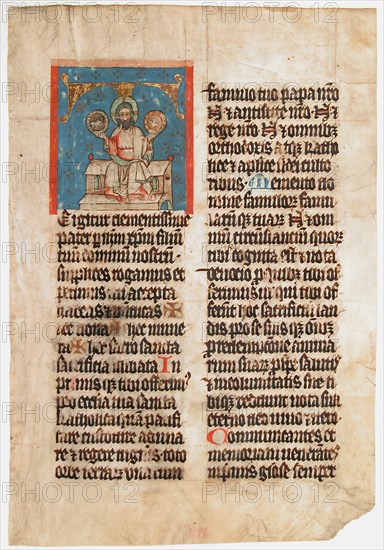 E igitur clementissime
pater p nim xpm filiu
tuu dominu nostru
supplices rogamus et
petimus uti accepta
habeas et benedicas
hec dona hec mune
ra hec sancta
sacrificia illibata In
primis q tibi offerim
pro ecclia tua sancta
katholica qua pacifi
care custodire aduna
re et regere digneris toto
orbe terraru vna cum
famulo tuo papa nro
N et antistite nro N et
rege nro N et omnibus
orthodoxis atq catho
lice et aplice fidei culto
ribus Memento do
mine famulor famu
laruq tuar N et omni
um circustanciu quor
tibi cognita est et nota
deuocio p quib tibi of
ferimus ul qui tibi of
ferut hoc sacrificiu lau
dis pro se suis q oibus
pro redempcione anima
rum suar p spe salutis
et incolumitatis sue ti
biq reddunt vota sua
eterno deo viuo et vero
Communicantes et
memoriam venerates
inprimis gliose semper